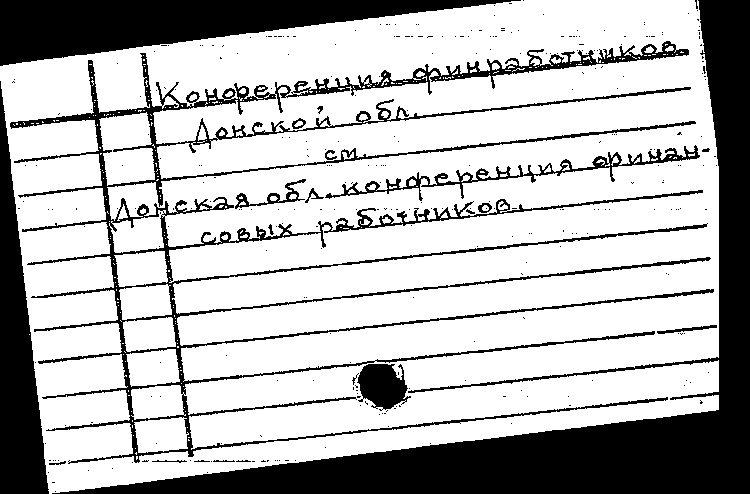 Конференция финработников
Донской обл.
см.
Донская обл. конференция финан-
совых работников.